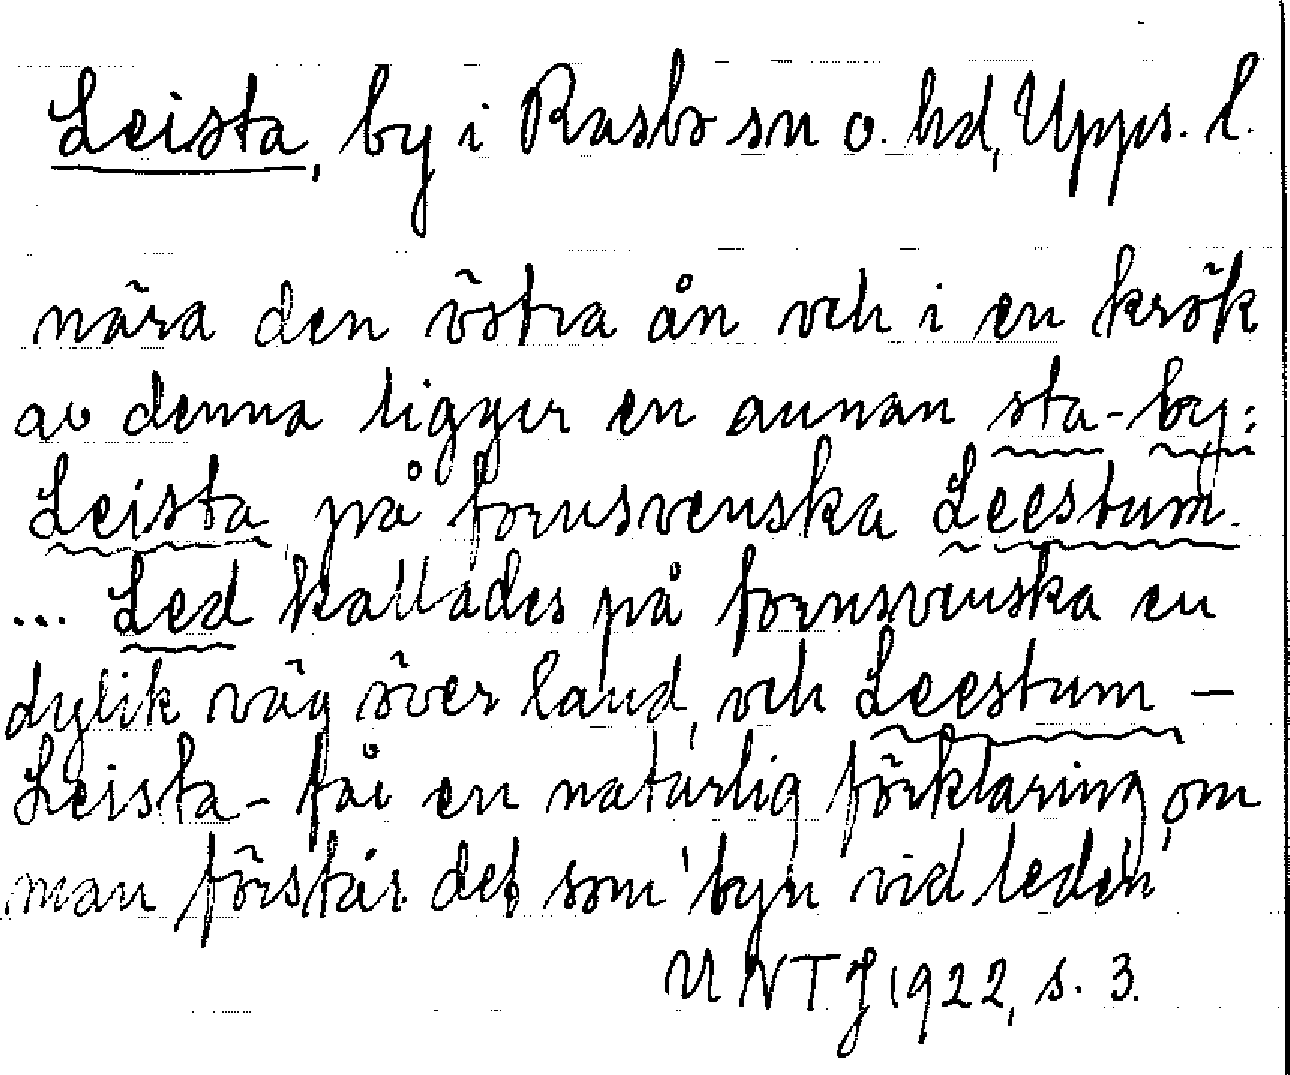 Leista, by i Rasbo sn o. hd, Upps. l.
nära den östra ån och i en krök
av denna ligger en annan sta-by:
Leista, på fornsvenska Leestum.
... Led kallades på fornsvenska en
dylik väg över land, och Leestum –
Leista – får en naturlig förklaring, om
man förstår det som 'byn vid leden'
UNTJ 1922, s. 3.